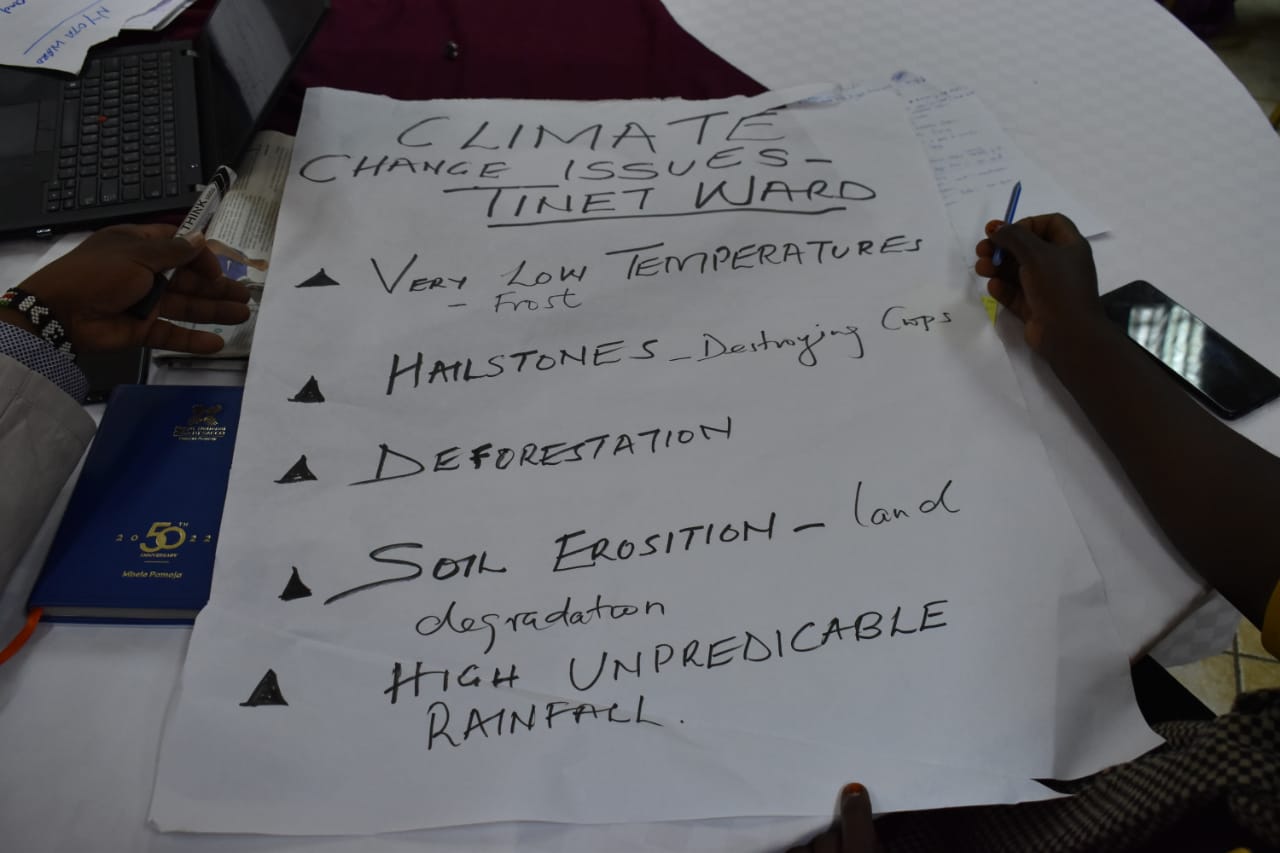 CLIMATE
CHANGE ISSUES-
TINET WARD
▲ VERY LOW TEMPERATURES
- Frost
▲ HAILSTONES - Destroying Crops
▲ DEFORESTATION
▲ SOIL EROSITION - land
degradation
▲ HIGH UNPREDICABLE
RAINFALL.
NYOTA WARD
THINK
2022
50TH
ANNIVERSARY
Mbele Pamoja